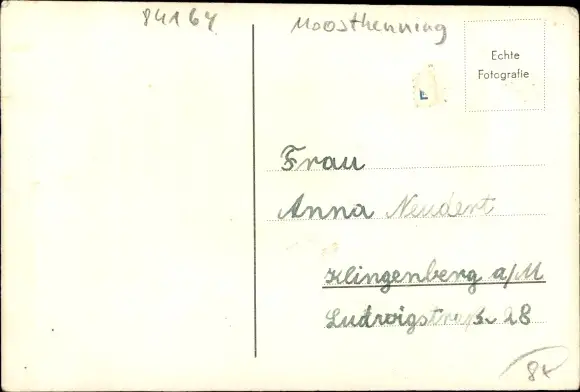 84164 Moosthenning
Echte
Fotografie
Frau
Anna Neudert
Klingenberg a/M
Ludwigstraße 28